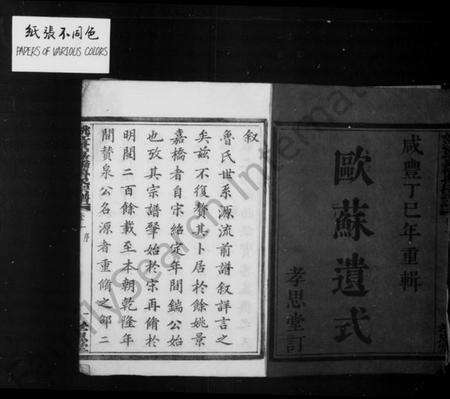 紙張不同色
PAPERS OF VARIOUS COLORS
咸豐丁巳年重輯
歐蘇遺式
孝思堂訂
叙
魯氏世系源流前譜叙詳言之
矣茲不復贅其卜居於餘姚景
嘉橋者自宋紹定年間鍴公始
也攷其宗譜肇始於宗再脩於
明閱二百餘載至本朝乾隆年
間贊泉公名源者重脩之邵二